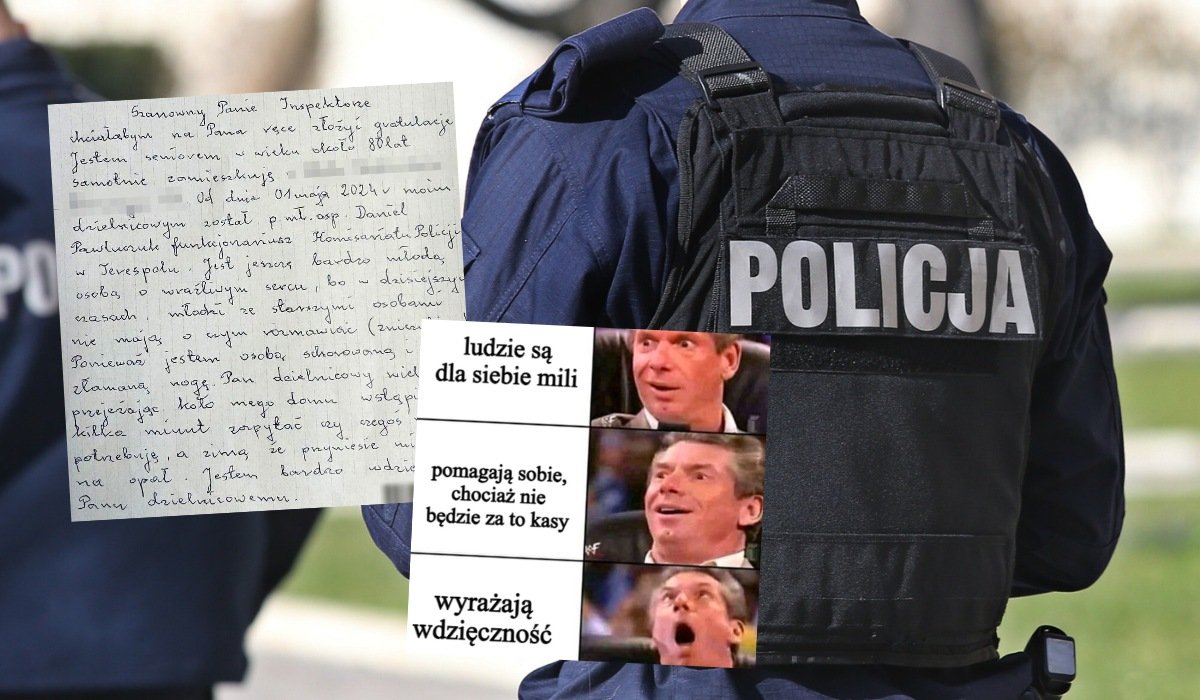 Szanowny Panie Inspektorze
chciałabym na Pana ręce złożyć gratulacje
Jestem seniorem w wieku około 80 lat
samotnie zamieszkuję
Od dnia 01 maja 2024 r moim
dzielnicowym został p. mł. asp. Daniel
Pawluczuk funkcjonariusz Komisariatu Policji
w Terespolu. Jest jeszcze bardzo młodą
osobą o wrażliwym sercu, bo w
czasach, młodzi ze starszymi osobami
nie mają o czym rozmawiać
Ponieważ jestem osobą schorowaną i
złamaną nogę. Pan dzielnicowy
przejeżdając koło mego domu
kilka minut zapytać czy czegoś
potrzebuję, a zimą że przyniesie
na opał. Jestem bardzo
Panu dzielnicowemu.
ludzie są
dla siebie mili
pomagają sobie,
chociaż nie
będzie za to kasy
wyrażają
wdzięczność
POLICJA
PO